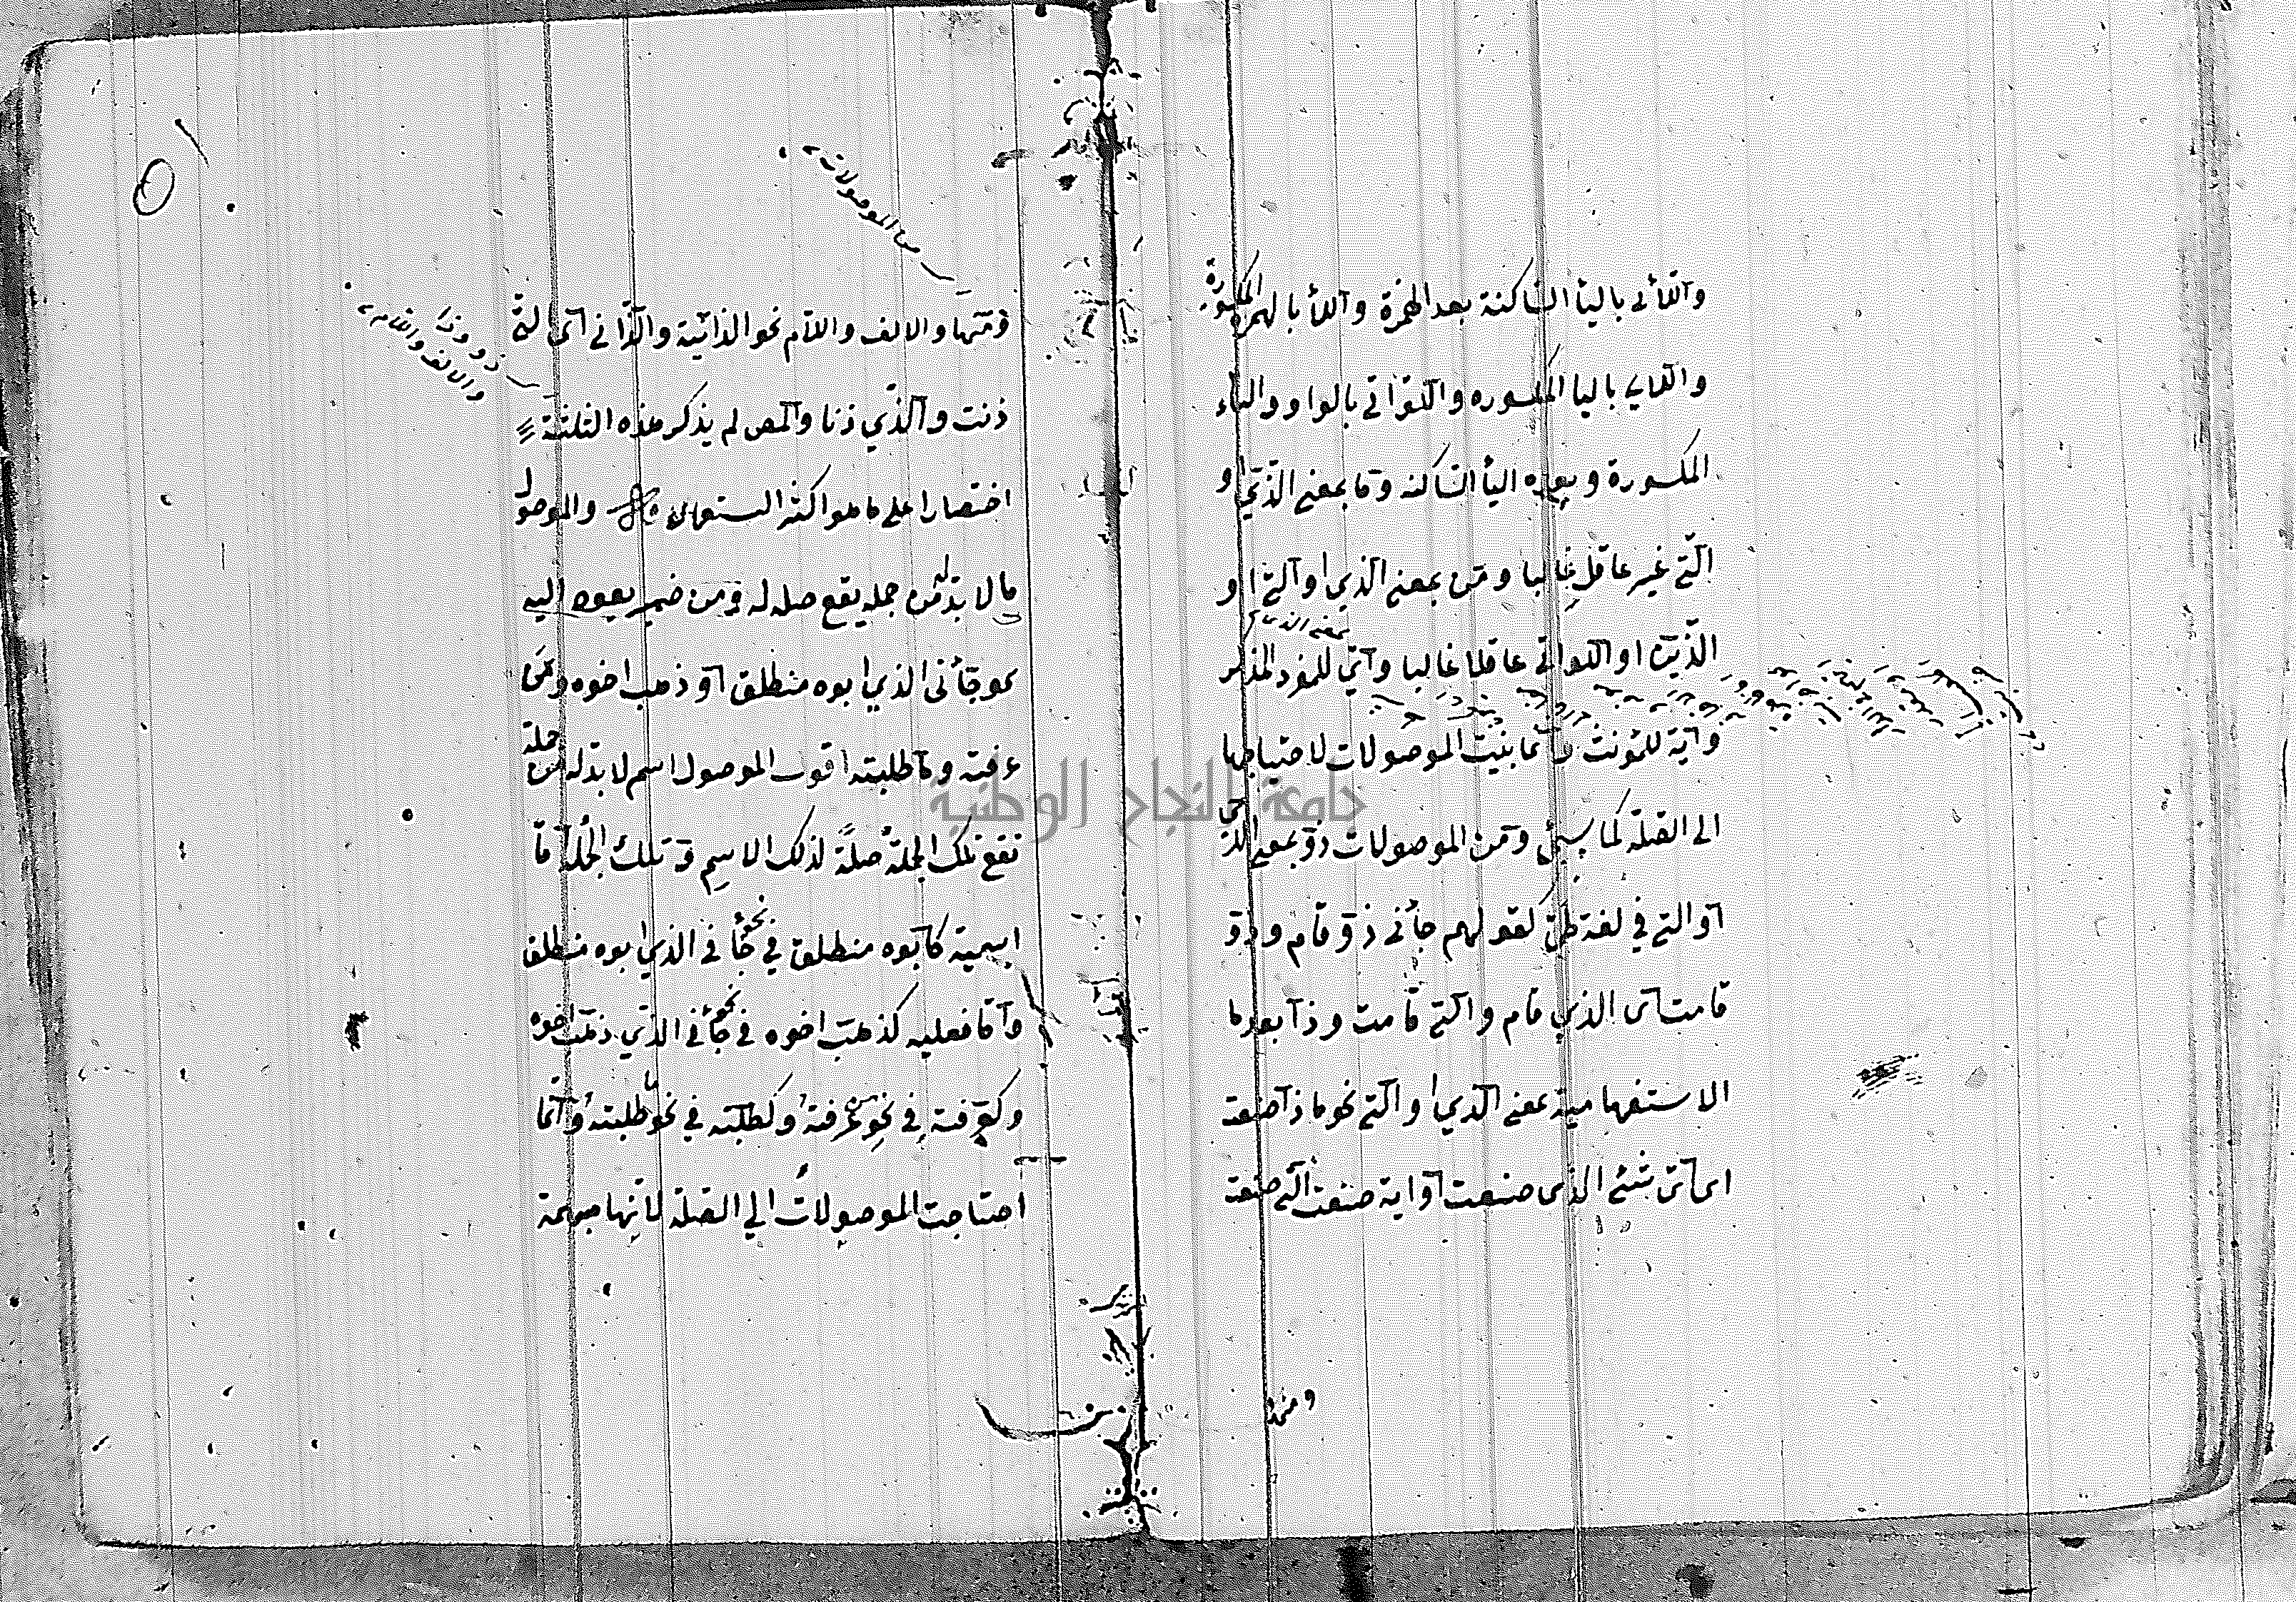 واللائي باليأ الساكنة بعد الهمزة واللأ بالهمزة المكسورة
واللاي باليا المكسوره واللواتي بالواو والتاء
المكسورة وبعده اليأ الساكنه وما بمعنى الذي او
التي غير عاقل غالبا ومن بمعنى الذي او التي او
الذين او اللواتي عاقلا غالبا واي للمفرد المذكر
بمعنى الذي
واية للمؤنث وانما بنيت الموصولات لاحتياجها
الى الصلة كما سيجئ ومن الموصولات ذو بمعنى الذي
او التي في لغة طي كقولهم جأنى ذو قام وذو
قامت اى الذي قام والتي قامت وذا بعد ما
الاستفهامية بمعنى الذي او التي نحو ماذا صنعت
اى اى شئ الذى صنعت او اية صنعت التي صنعت
ومنها
من الموصولات
ومنها والالف واللام نحو الذانية والزاني اى التي
ذو وذا
والالف واللام
زنت والذي زنا والمص لم يذكر هذه الثلثة
اختصارا على ما هو اكثر استعمالا والموصول
ما لا بد له من جمله يقع صله له ومن ضمير يعود اليه
نحو جأنى الذي ابوه منطلق او ذهب اخوه ومن
عرفته وما طلبته اقول الموصول اسم لا بد له من جملة
تقع تلك الجملة صلة لذلك الاسم وتلك الجملة اما
اسمية كابوه منطلق في نحو جأنى الذي ابوه منطلق
واما فعليه كذهب اخوه في نحو جأنى الذي ذهب اخوه
وكعرفته في نحو من عرفته وكطلبته في نحو ما طلبته وانما
احتاجت الموصولات الي الصلة لانها مبهمة
جامعة النجاح الوطنية